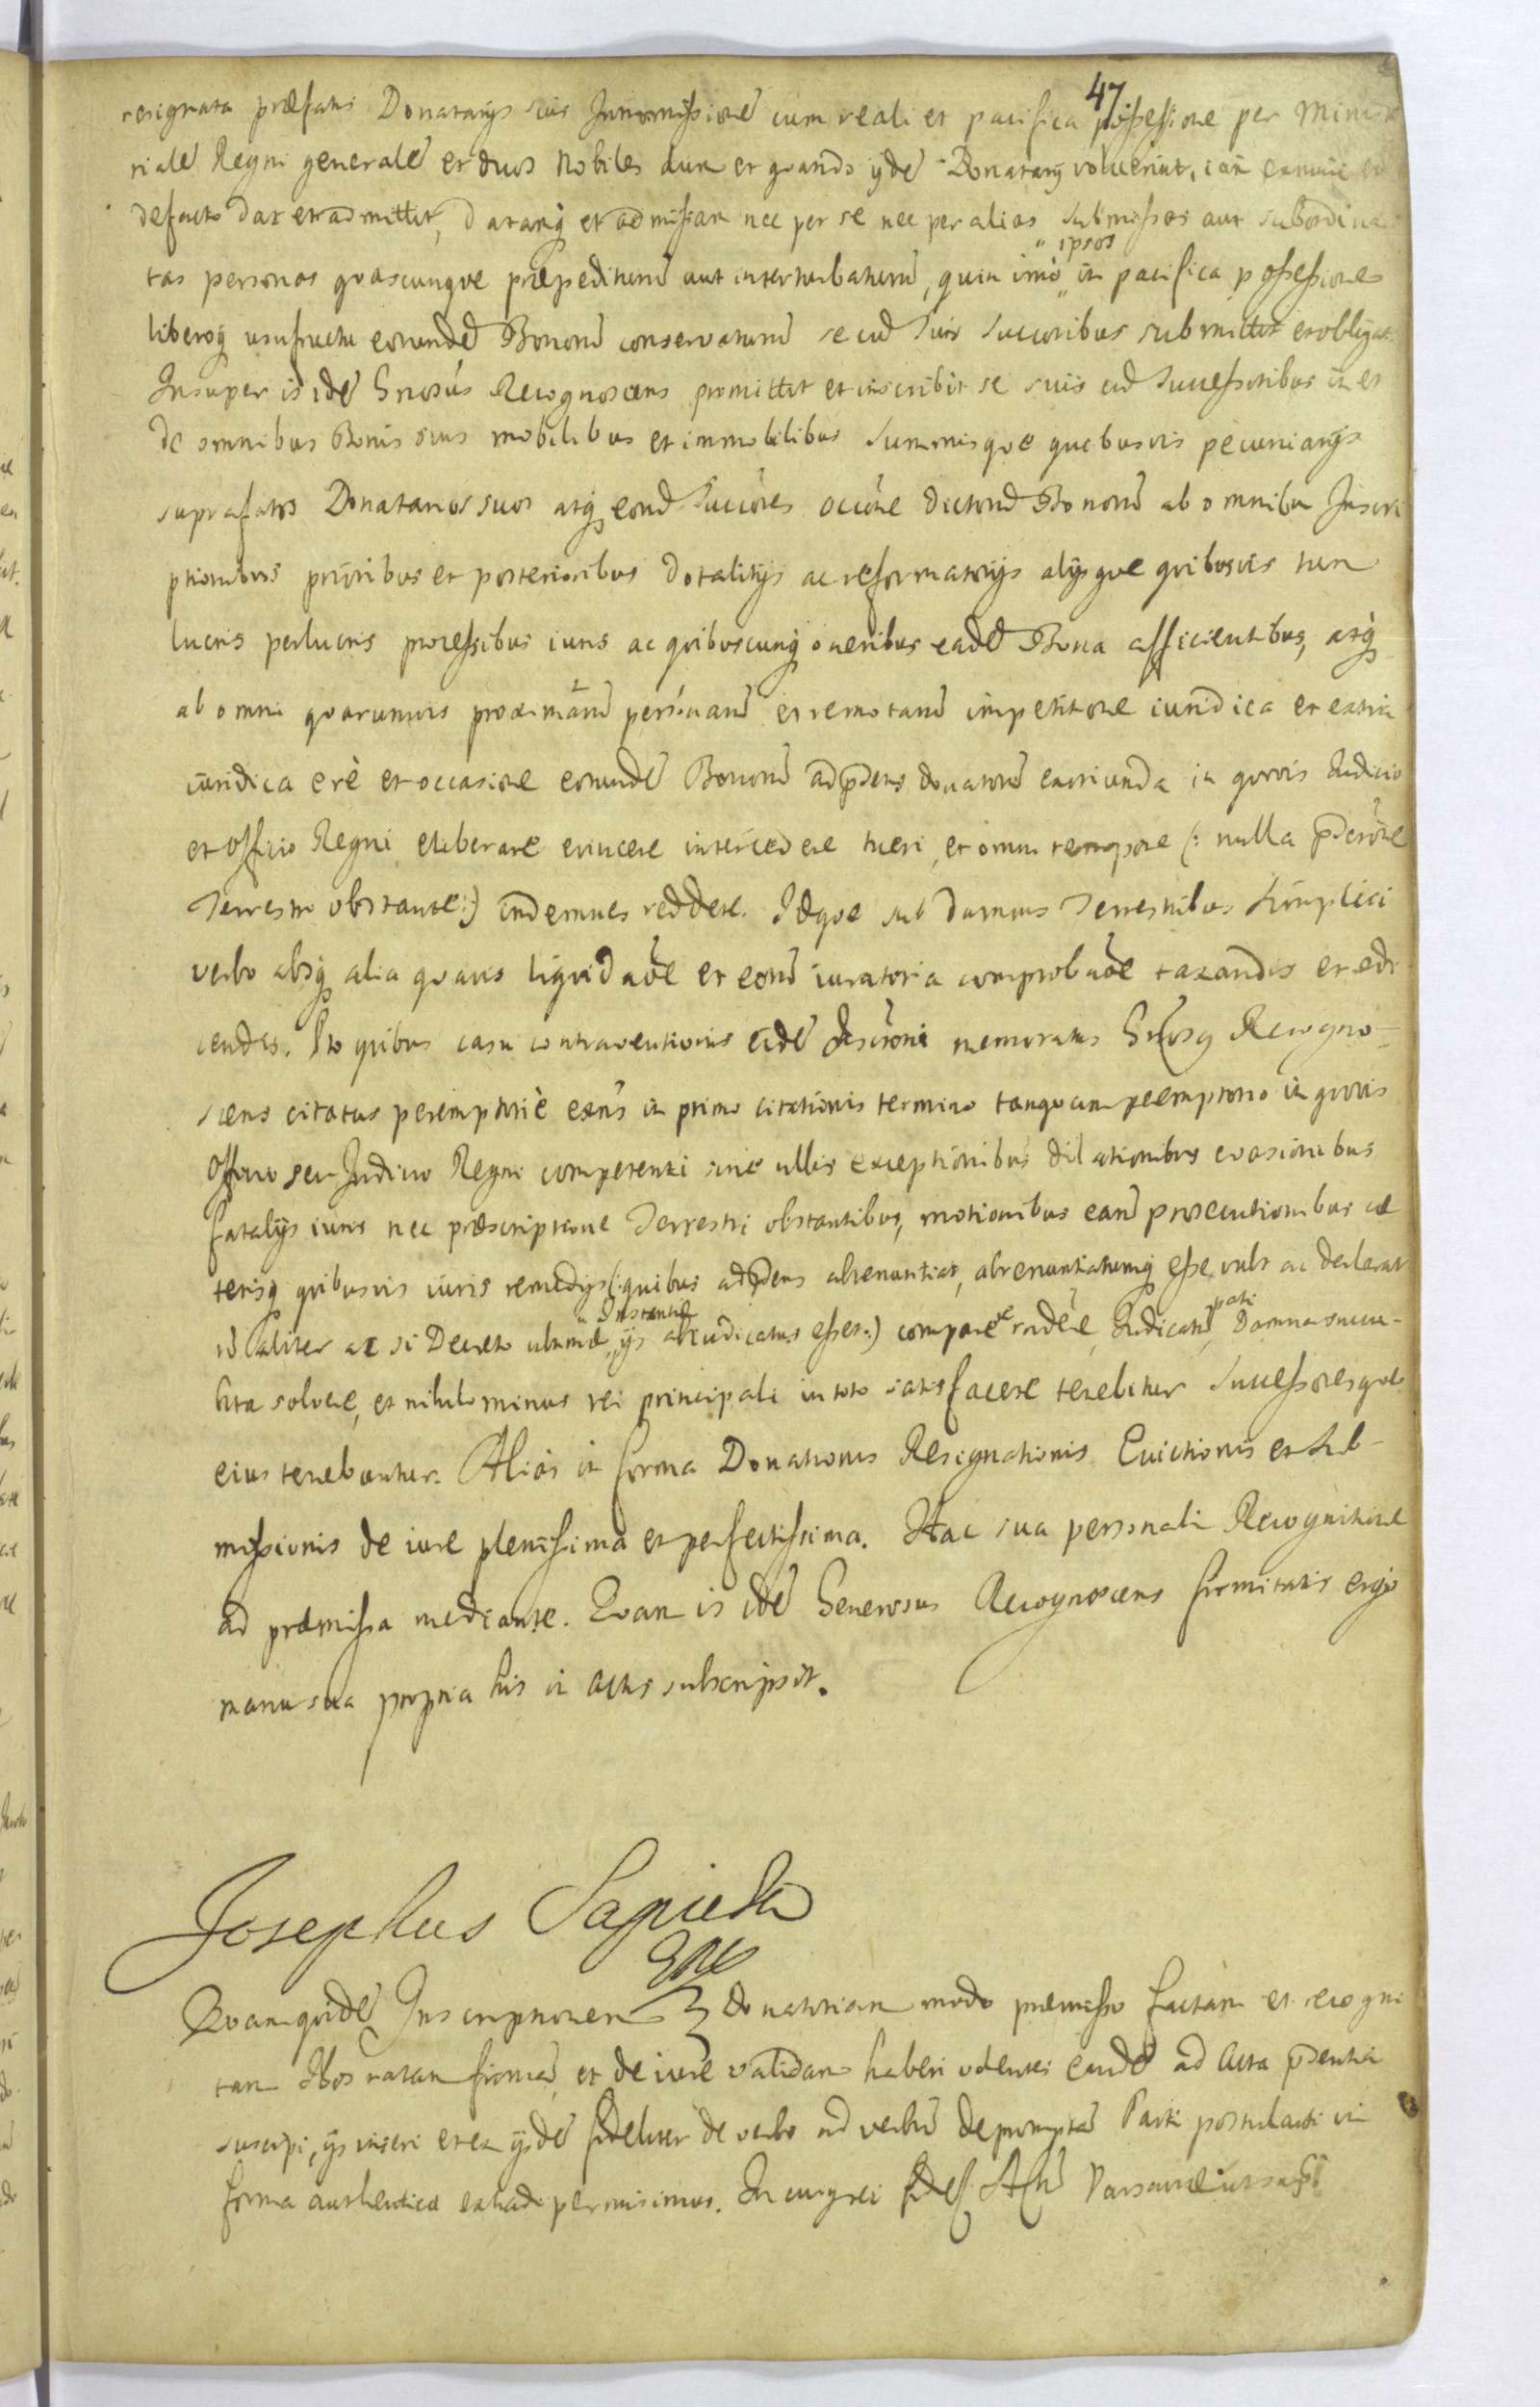 47
resignata præfatis Donatarijs suis Intromissionē cum reali et pacifica possessione per Ministe
rialē Regni generalē et duos Nobiles dum et quando ijdē Donatarij voluerint, iam exnunc et
defacto dat et admittit, datamq et admissam nec per se nec per alias submissas aut subordina
tas personas quascunque præpediturū aut interturbaturū, quin imò " ipsos in pacifica possessione
liberoq usufructu eorundē Bonorū conservaturū se cū suis succoribus submittit et obligat.
Insuper is idē Gnosus Recognoscens promittit et inscribit se suis cū Successoribus in et
de omnibus Bonis suis mobilibus et immobilibus Summisque quibusvis pecuniarijs
suprafatos Donatarios suos atq eorū Succōres occōne dictorū Bonorū ab omnibus Inscri
ptionibus prioribus et posterioribus dotalitijs ac reformatorijs alijsque quibusvis tum
lucris perlucris processibus iuris ac quibuscunq oneribus eadē Bona afficientibus, atq
ab omni quarumvis proximarū personarū et remotarū impetitione iuridica et extra
iuridica erè et occasione eorundē Bonorū ad p̄dens donatorū exoriunda in quovis Judicio
et Officio Regni eliberare evincere intercedere tueri, et omni tempore (: nulla p̄scrōne
Terrestri obstante :) indemnes reddere. Idque sub damnis Terrestribus simplici
verbo absq alia quavis liquidaōe et eorū iuratoria comprobaōe taxandis et edi
cendis. Pro quibus casu contraventionis eidē Inscrōni memoratus Gnosus Recogno-
scens citatus peremptoriè exn̄s in primo citationis termino tanquam peremptorio in quovis
Officio seu Judicio Regni competenti sine ullis exceptionibus dilationibus evasionibus
fatalijs iuris nec præscriptione Terrestri obstantibus, motionibus earū prosecutionibus cæ
terisq quibusvis iuris remedijs (: quibus ad p̄dens abrenuntiat, abrenuntiatumq esse vult ac declarat
id aliter ac si Decreto ultimæ " Instantiæ ijs abiudicatus esset :) comparere rñdēre, Judicatū pati Damna succu-
bita solvere, et nihilominus rei principali in toto satisfacere tenebitur Successoresque
eius tenebuntur. Alias in forma Donationis Resignationis Evictionis et Sub-
missionis de iure plenissima et perfectissima. Hac sua personali Recognitione
ad præmissa mediante. Quam is idē Generosus Recognoscens firmitatis ergo
manu sua propria his in Actis subscripsit.
Josephus Sapieha
Quam quidē Inscriptionem donatoriam modo præmisso factam et recogni
tam Nos ratam firmā, et de iure validam haberi volentes eandē ad Acta p̄sentia
suscipi, ijs inseri et ex ijsdē fideliter de verbo ad verbū depromptā Parti postulanti in
forma authentica extradi permisimus. In cuius rei fidē Actū Varsaviæ ut supra